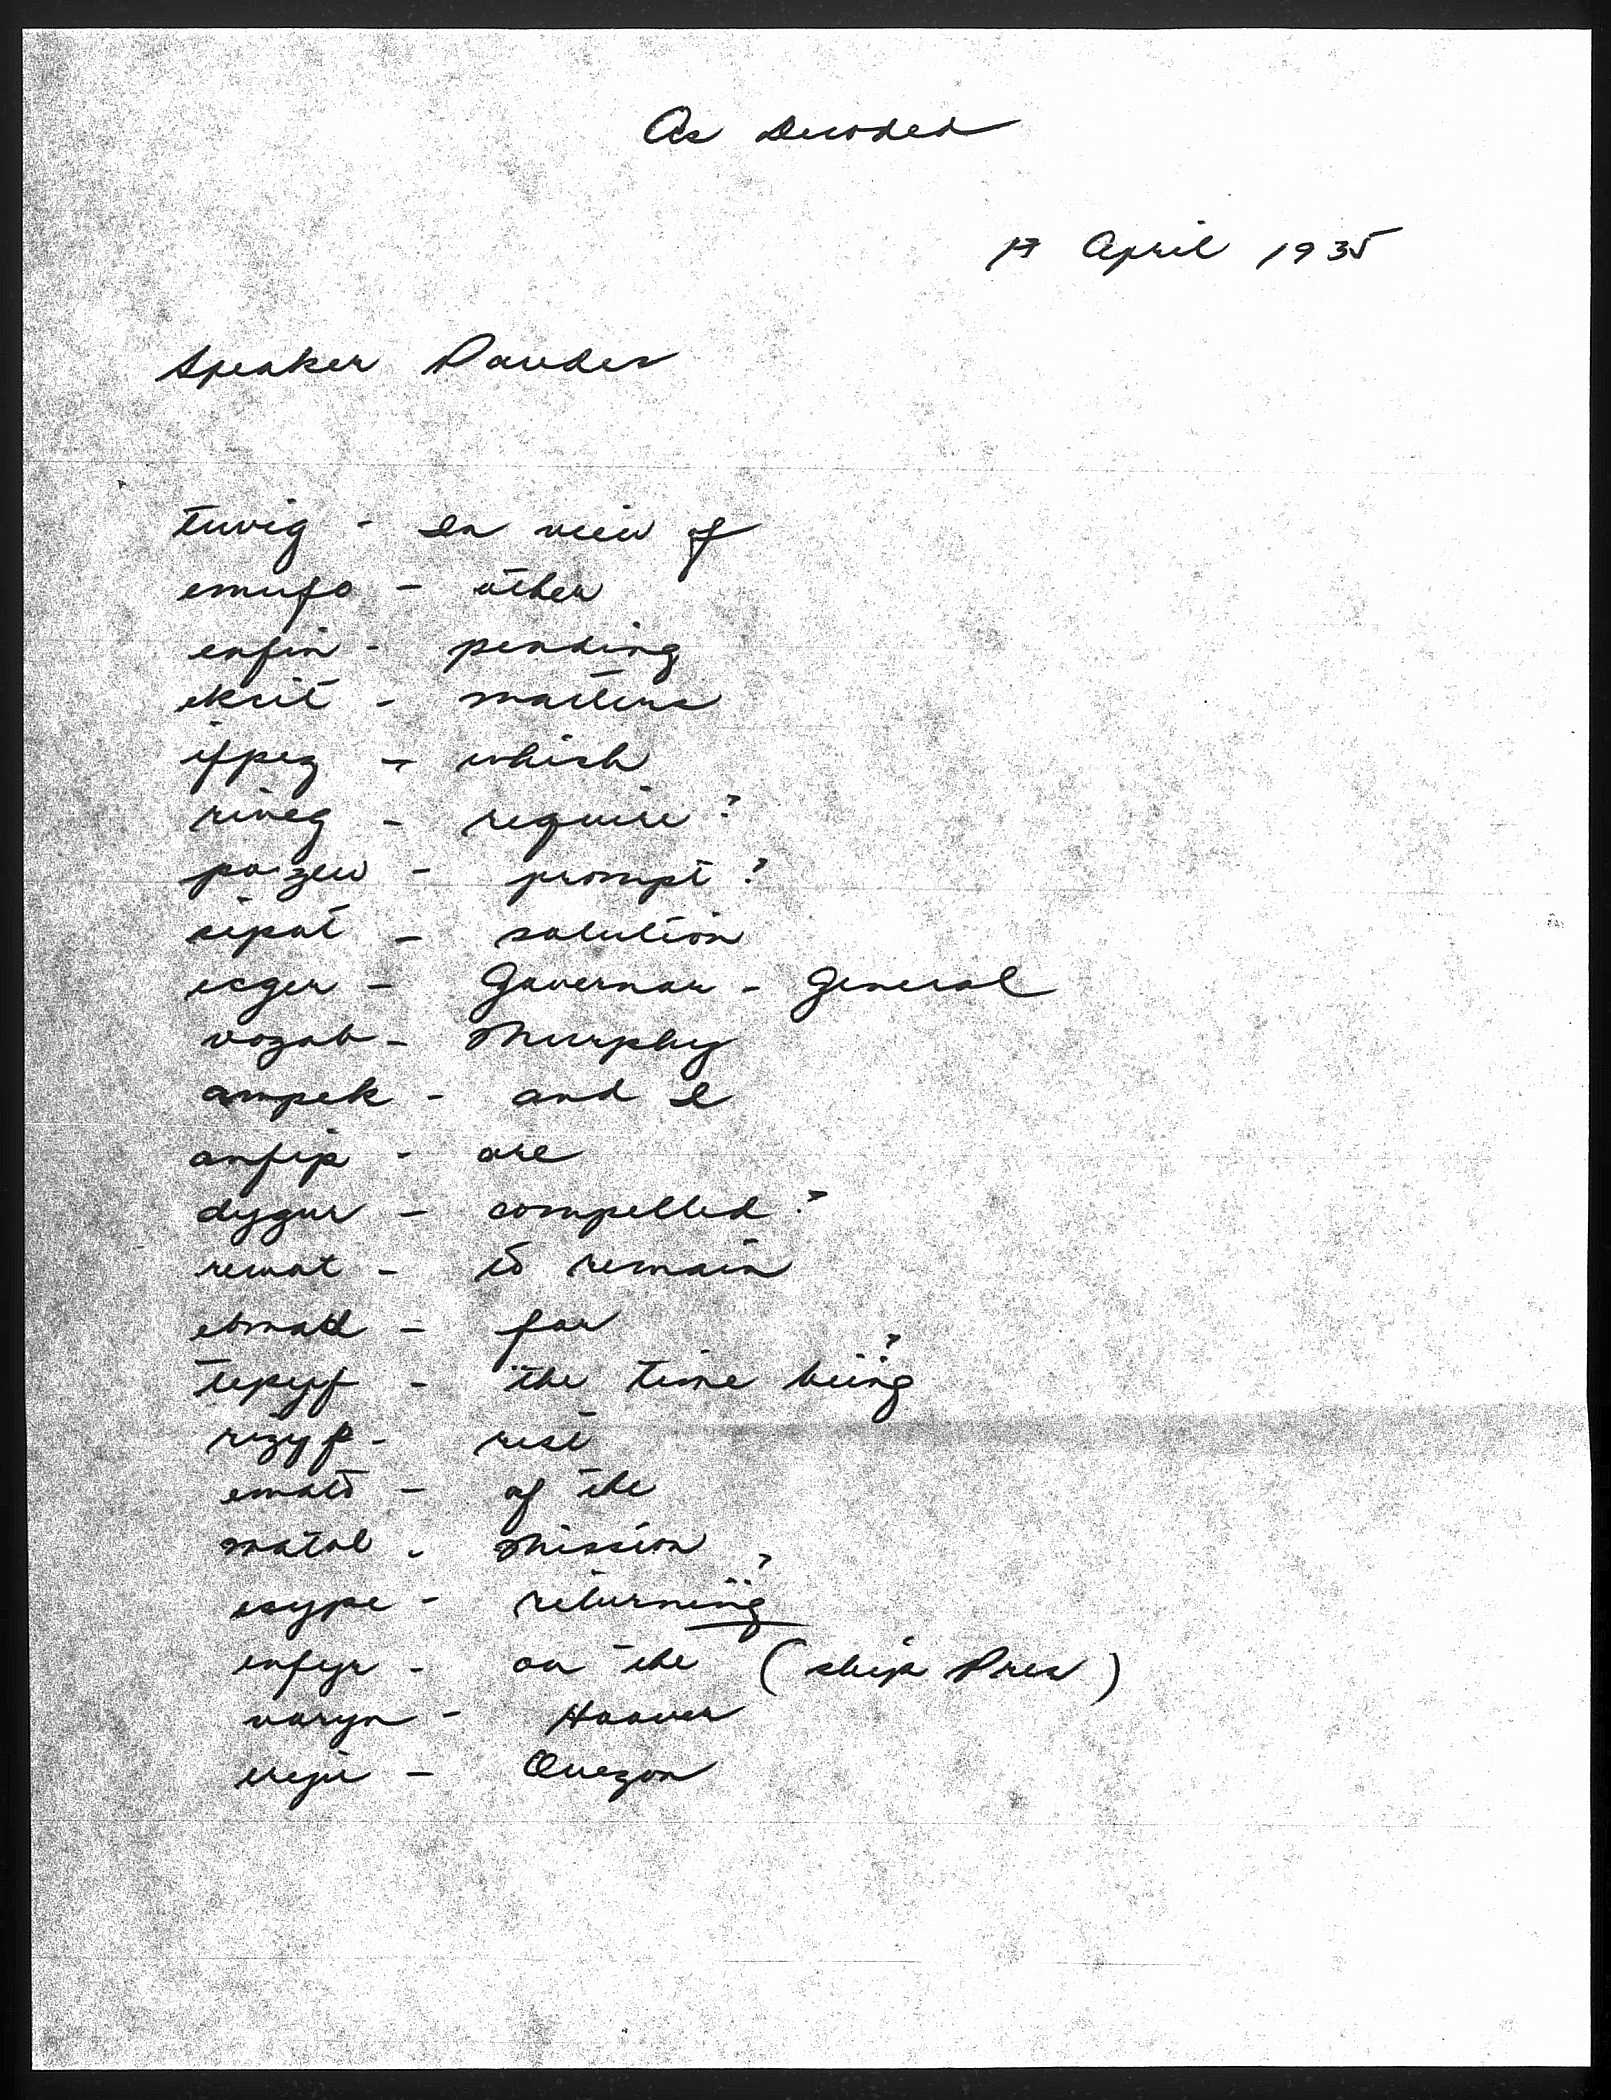 As Decoded
17 April 1935
Speaker Paredes
tuvig - In view of
emufo - other
enfin - pending
eksit - matters
ifpez - which
riveg - require ?
pozew - prompt ?
sipat - solution
esger - Governor - General
vozab - Murphy
ampek - and I
anfip - are
dygur - compelled ?
rewat - to remain
ebmad - for
tepyf - the time being ?
rizyf - rest
emato - of the
matol - Mission
esype - returning ?
enfyr - on the (ship Pres)
varyn - Hoover
erejir - Quezon